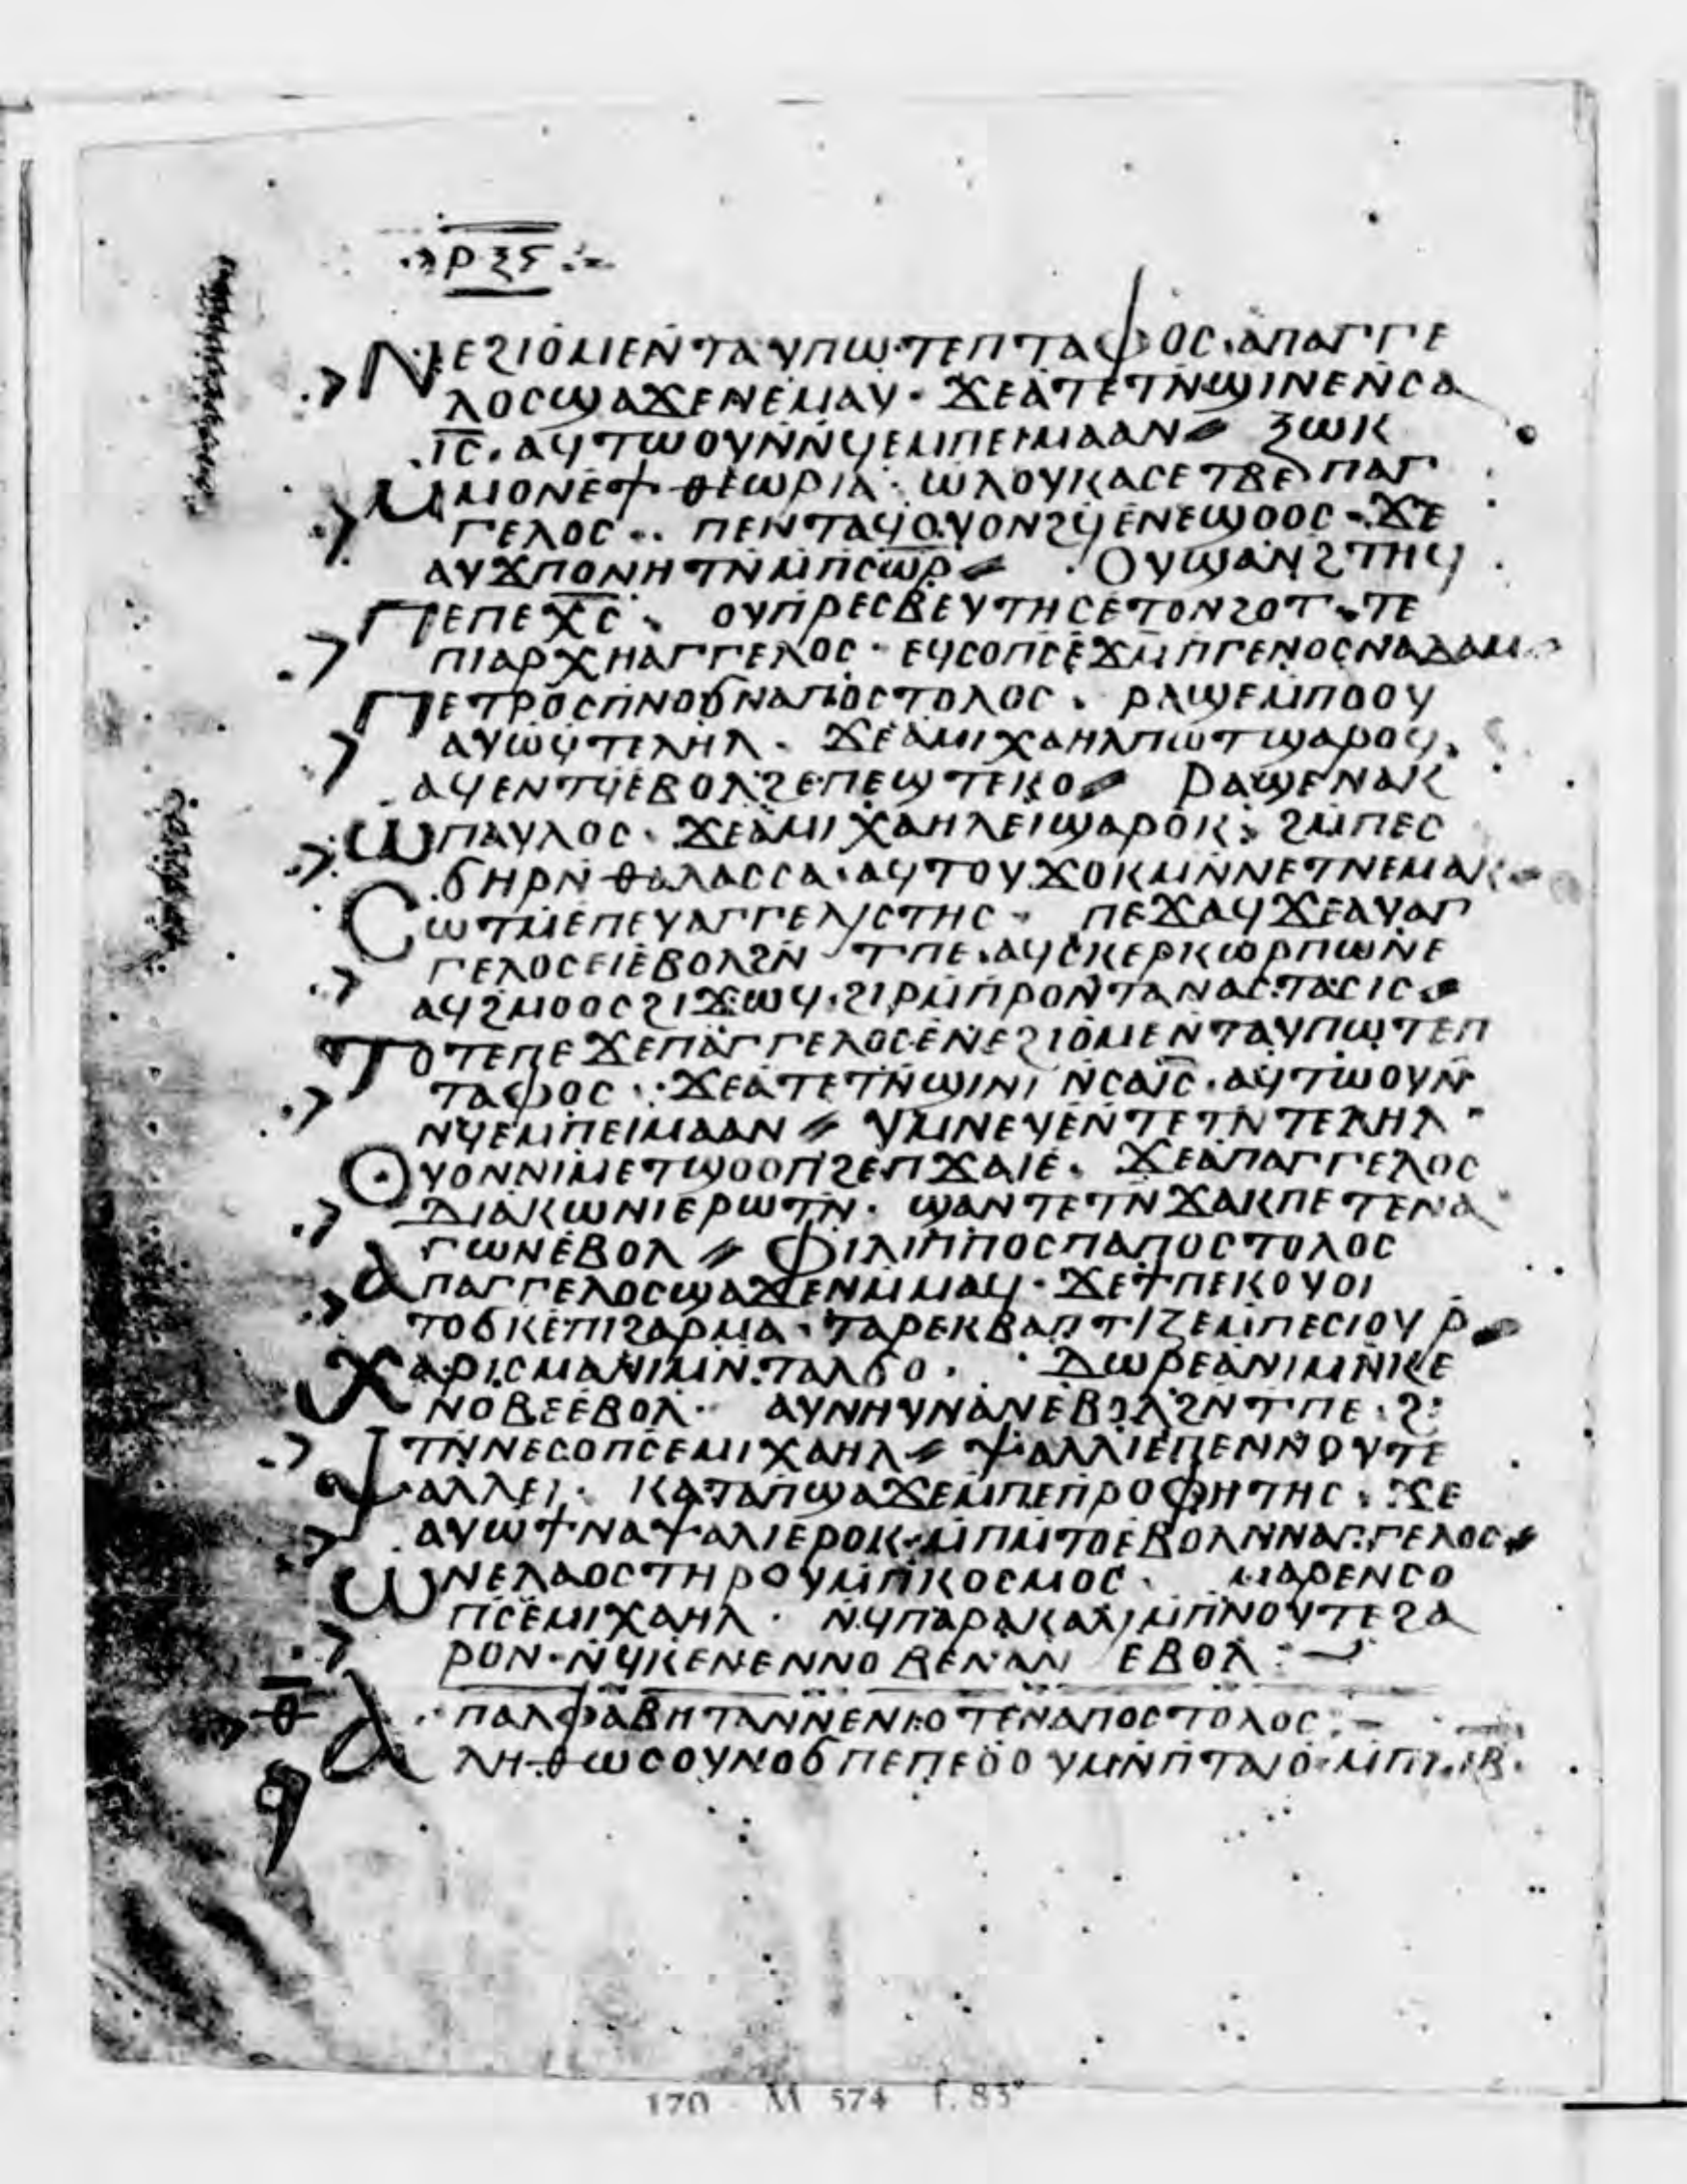 ⲣⲝⲋ
ⲛⲉϩⲓⲟⲙⲉ ⲛⲧⲁⲩⲡⲱⲧ ⲉⲡⲧⲁⲫⲟⲥ · ⲁⲡⲁⲅⲅⲉ
ⲗⲟⲥ ϣⲁϫⲉ ⲛⲉⲙⲁⲩ · ϫⲉ ⲁⲧⲉⲧⲛϣⲓⲛⲉ ⲛⲥⲁ
ⲓⲥ̅ · ⲁϥⲧⲱⲟⲩⲛ ⲛϥⲙⲡⲉⲓⲙⲁ ⲁⲛ ⳼ ⲝⲱⲕ
ⲙⲙⲟⲛ ⲉϯⲑⲉⲱⲣⲓⲁ · ⲱ ⲗⲟⲩⲕⲁⲥ ⲉⲧⲃⲉ ⲡⲁⲅ
ⲅⲉⲗⲟⲥ · ⲡⲉⲛⲧⲁϥⲟⲩⲟⲛϩϥ ⲉⲛⲉϣⲟⲟⲥ · ϫⲉ
ⲁⲩϫⲡⲟ ⲛⲏⲧⲛ ⲙⲡⲥⲱⲣ̅ ⳼ ⲟⲩϣⲁⲛϩⲧⲏϥ
ⲡⲉ ⲡⲉⲭⲥ̅ · ⲟⲩⲡⲣⲉⲥⲃⲉⲩⲧⲏⲥ ⲉⲧⲟⲛϩⲟⲧ · ⲧⲉ
ⲡⲓⲁⲣⲭⲏⲁⲅⲅⲉⲗⲟⲥ · ⲉϥⲥⲟⲡⲥ ⲉϫⲙ ⲡⲅⲉⲛⲟⲥ ⲛⲁⲇⲁⲙ
ⲡⲉⲧⲣⲟⲥ ⲡⲛⲟϭ ⲛⲁⲡⲟⲥⲧⲟⲗⲟⲥ · ⲣⲁϣⲉ ⲙⲡⲟⲟⲩ
ⲁⲩⲱ ϥⲧⲉⲗⲏⲗ · ϫⲉ ⲁⲙⲓⲭⲁⲏⲗ ⲡⲱⲧ ϣⲁⲣⲟϥ ·
ⲁϥⲉⲛⲧϥ ⲉⲃⲟⲗ ϩⲉ ⲡⲉϣⲧⲉⲕⲟ ⳼ ⲣⲁϣⲉ ⲛⲁⲕ
ⲱ ⲡⲁⲩⲗⲟⲥ · ϫⲉ ⲁⲙⲓⲭⲁⲏⲗ ⲉⲓ ϣⲁⲣⲟⲕ · ϩⲙ ⲡⲉⲥ
ϭⲏⲣ ⲛⲑⲁⲗⲁⲥⲥⲁ · ⲁϥⲧⲟⲩϫⲟⲕ ⲙⲛ ⲛⲉⲧⲛⲉⲙⲁⲕ
ⲥⲱⲧⲙ ⲉⲡⲉⲩⲁⲅⲅⲉⲗⲓⲥⲧⲏⲥ · ⲡⲉϫⲁϥ ϫⲉ ⲁⲩⲁⲅ
ⲅⲉⲗⲟⲥ ⲉⲓ ⲉⲃⲟⲗ ϩⲛ ⲧⲡⲉ · ⲁϥⲥⲕⲉⲣⲕⲱⲣ ⲡⲱⲛⲉ
ⲁϥϩⲙⲟⲟⲥ ϩⲓϫⲱϥ · ϩⲓⲣⲙ ⲡⲣⲟ ⲛⲧⲁⲛⲁⲥⲧⲁⲥⲓⲥ ⳼
ⲧⲟⲧⲉ ⲡⲉϫⲉ ⲡⲁⲅⲅⲉⲗⲟⲥ ⲉⲛⲉϩⲓⲟⲙⲉ ⲛⲧⲁⲩⲡⲱⲧ ⲉⲡ
ⲧⲁⲫⲟⲥ · ϫⲉ ⲁⲧⲉⲧⲛϣⲓⲛⲓ ⲛⲥⲁ ⲓⲥ̅ · ⲁϥⲧⲱⲟⲩⲛ
ⲛϥⲉⲙⲡⲉⲓⲙⲁ ⲁⲛ ⳼ ⲩⲙⲛⲉⲩⲉ ⲛⲧⲉⲧⲛⲧⲉⲗⲏⲗ
ⲟⲩⲟⲛ ⲛⲓⲙ ⲉⲧϣⲟⲟⲡ ϩⲉ ⲡϫⲁⲓⲉ · ϫⲉ ⲁⲡⲁⲅⲅⲉⲗⲟⲥ
ⲇⲓⲁⲕⲱⲛⲓ ⲉⲣⲱⲧⲛ · ϣⲁⲛⲧⲉⲧⲛϫⲁⲕ ⲡⲉⲧⲉⲛⲁ
ⲅⲱⲛ ⲉⲃⲟⲗ ⳼ ⲫⲓⲗⲓⲡⲡⲟⲥ ⲡⲁⲡⲟⲥⲧⲟⲗⲟⲥ
ⲁⲡⲁⲅⲅⲉⲗⲟⲥ ϣⲁϫⲉ ⲛⲙⲙⲁϥ · ϫⲉ ϯⲡⲉⲕⲟⲩⲟⲓ
ⲧⲟϭⲕ ⲉⲡⲓϩⲁⲣⲙⲁ · ⲧⲁⲣⲉⲕⲃⲁⲡⲧⲓⲍⲉ ⲙⲡⲉⲥⲓⲟⲩⲣ
ⲭⲁⲣⲓⲥⲙⲁ ⲛⲓⲙ ⲛⲧⲁⲗϭⲟ · ⲇⲱⲣⲉⲁ ⲛⲓⲙ ⲛⲕⲉ
ⲛⲟⲃⲉ ⲉⲃⲟⲗ · ⲁⲩⲛⲏⲩ ⲛⲁⲛ ⲉⲃⲟⲗ ϩⲛ ⲧⲡⲉ · ϩⲓ
ⲧⲛ ⲛⲉⲥⲟⲡⲥ ⲉⲙⲓⲭⲁⲏⲗ ⳼ ⲯⲁⲗⲗⲓ ⲉⲡⲉⲛⲛⲟⲩⲧⲉ
ⲯⲁⲗⲗⲉⲓ · ⲕⲁⲧⲁ ⲡϣⲁϫⲉ ⲙⲡⲉⲡⲣⲟⲫⲏⲧⲏⲥ · ϫⲉ
ⲁⲩⲱ ϯⲛⲁⲯⲁⲗⲓ ⲉⲣⲟⲕ · ⲙⲡⲙⲧⲟ ⲉⲃⲟⲗ ⲛⲛⲁⲅⲅⲉⲗⲟⲥ ⳼
ⲱ ⲛⲉⲗⲁⲟⲥ ⲧⲏⲣⲟⲩ ⲙⲡⲕⲟⲥⲙⲟⲥ · ⲙⲁⲣⲉⲛⲥⲟ
ⲡⲥ ⲉⲙⲓⲭⲁⲏⲗ · ⲛϥⲡⲁⲣⲁⲕⲁⲗⲓ ⲙⲡⲛⲟⲩⲧⲉ ϩⲁ
ⲣⲟⲛ · ⲛϥⲕⲉ ⲛⲉⲛⲛⲟⲃⲉ ⲛⲁⲛ ⲉⲃⲟⲗ :
ⲑ̅ ⲁⲡⲁⲗⲫⲁⲃⲏⲧⲁ ⲛⲛⲉⲛⲓⲟⲧⲉ ⲛⲁⲡⲟⲥⲧⲟⲗⲟⲥ :
ⲁⲗⲏⲑⲱⲥ ⲟⲩⲛⲟϭ ⲡⲉ ⲡⲉⲟⲟⲩ ⲙⲛ ⲡⲧⲁⲓⲟ ⲙⲡⲓⲓⲃ
170 M 574 f. 83ᵛ